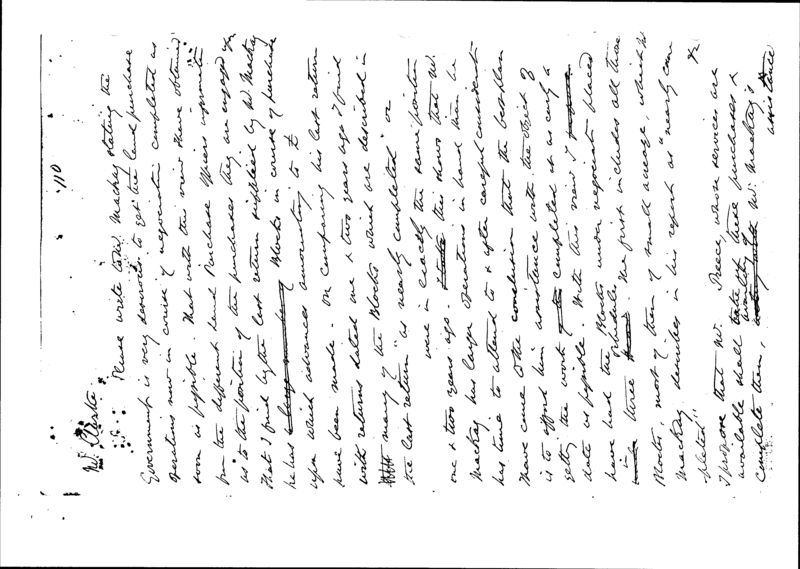 110
Mr Clarke
Please write to Mr. Mackay stating the
Government is very desirous to get the land purchase
operations now in course of negociation completed as
soon as possible. That with this view I have obtained
from the different Land Purchase Officers reports
as to the position of the purchases they are engaged
That I find by the last return supplied by Mr. Mackay
he has Blocks in course of purchase
upon which advances amounting to £
have been made. On comparing his last return
with returns dated one & two years ago I find
many of the Blocks which are described in
the last return "as nearly completed" or
were in exactly the same position
one & two years ago. this shows that Mr.
Mackay has larger operations in hand than he
has time to attend to & after careful consideration
I have come to the conclusion that the best plan
is to afford him assistance with the object of
getting the work completed at as early a
date as possible. With this view I
have had the Blocks under negociation placed
in three Schedules. The first includes all those
Blocks, most of them of small acreage, which Mr
Mackay describes in his report as "nearly com
pleted"
I propose that Mr. Preece, whose services are
available shall take these purchases &
complete them, availing of Mr. Mackay's
assistance